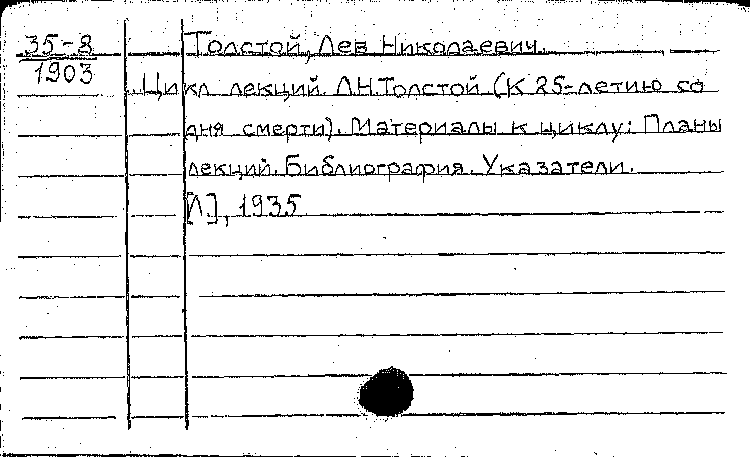 35-8
1903
Толстой, Лев Николаевич.
Цикл лекций. Л.Н.Толстой (К 25-летию со
дня смерти). Материалы к циклу: Планы
лекций. Библиография. Указатели.
[Л.], 1935